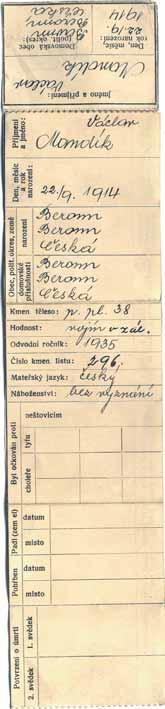 Jméno a příjmení:
Mandík Václav
Den, měsíc
a rok narození:
22/9.
1914
Domovská obec
(polit. okres):
Beroun
Beroun
Česká
Příjmení a jméno:
Václav
Mandík
Den, měsíc a rok narození:
22/9. 1914
Obec, polit. okres, země
narození
Beroun
Beroun
Česká
domovské příslušnosti
Beroun
Beroun
Česká
Kmen. těleso: p. pl. 38
Hodnost: vojín v zál.
Odvodní ročník: 1935
Číslo kmen. listu: 296
Mateřský jazyk: český
Náboženství: bez vyznání
Byl očkován proti
neštovicím
tyfu
choleře
Padl (zem el)
datum
místo
Pohřben
datum
místo
Potvrzení o úmrtí
1. svědek
2. svědek